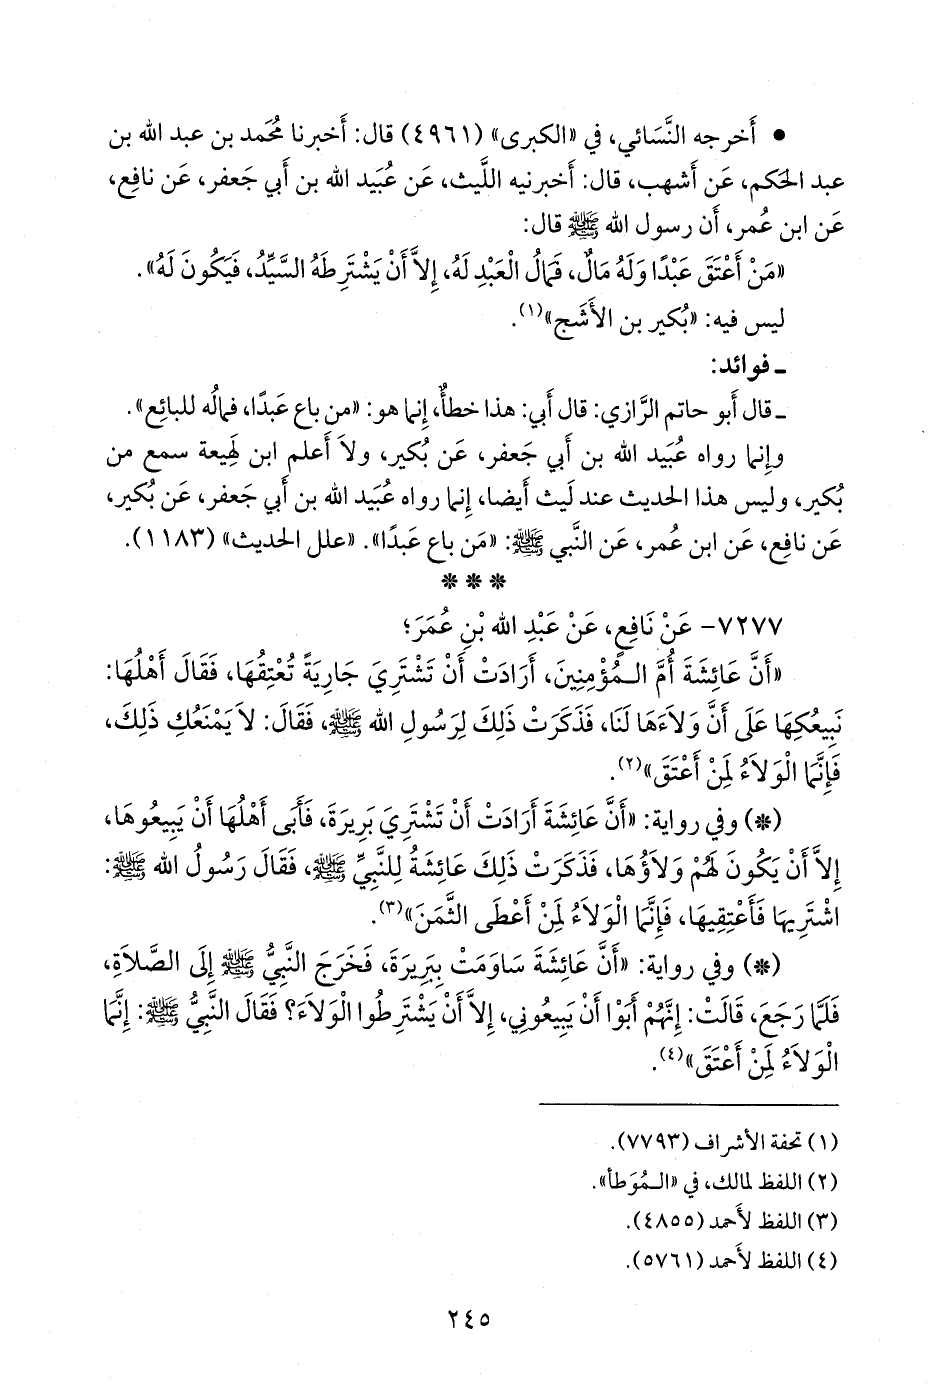 • أَخرجه النَّسَائي، في «الكبرى» (٤٩٦١) قال: أَخبرنا مُحَمد بن عبد الله بن
عبد الحَكم، عَن أَشهب، قال: أَخبرنيه اللَّيث، عَن عُبَيد الله بن أَبي جَعفر، عَن نافِع،
عَن ابن عُمر، أَن رسول الله ﷺ قال:
«مَنْ أَعْتَقَ عَبْدًا وَلَهُ مَالٌ، فَمَالُ الْعَبْدِ لَهُ، إِلاَّ أَنْ يَشْتَرِطَهُ السَّيِّدُ، فَيَكُونَ لَهُ».
ليس فيه: «بُكير بن الأَشَج»(١).
ـ فوائد:
ـ قال أَبو حاتم الرَّازي: قال أَبي: هذا خطأٌ، إِنما هو: «من باع عَبدًا، فمالُه للبائِع».
وإِنما رواه عُبَيد الله بن أَبي جَعفر، عَن بُكير، ولاَ أَعلم ابن لَهِيعة سمع من
بُكير، وليس هذا الحديث عند لَيث أَيضا، إِنما رواه عُبَيد الله بن أَبي جَعفر، عَن بُكير،
عَن نافِع، عَن ابن عُمر، عَن النَّبي ﷺ: «مَن باع عَبدًا». «علل الحديث» (١١٨٣).
* * *
٧٢٧٧- عَنْ نَافِعٍ، عَنْ عَبْدِ الله بْنِ عُمَرَ؛
«أَنَّ عَائِشَةَ أُمَّ الـمُؤْمِنِينَ، أَرَادَتْ أَنْ تَشْتَرِيَ جَارِيَةً تُعْتِقُهَا، فَقَالَ أَهْلُهَا:
نَبِيعُكِهَا عَلَى أَنَّ وَلاَءَهَا لَنَا، فَذَكَرَتْ ذَلِكَ لِرَسُولِ الله ﷺ، فَقَالَ: لاَ يَمْنَعُكِ ذَلِكَ،
فَإِنَّمَا الْوَلاَءُ لِمَنْ أَعْتَقَ»(٢).
(*) وفي رواية: «أَنَّ عَائِشَةَ أَرَادَتْ أَنْ تَشْتَرِيَ بَرِيرَةَ، فَأَبَى أَهْلُهَا أَنْ يَبِيعُوهَا،
إِلاَّ أَنْ يَكُونَ لَهُمْ وَلاَؤُهَا، فَذَكَرَتْ ذَلِكَ عَائِشَةُ لِلنَّبِيِّ ﷺ، فَقَالَ رَسُولُ الله ﷺ:
اشْتَرِيهَا فَأَعْتِقِيهَا، فَإِنَّمَا الْوَلاَءُ لِمَنْ أَعْطَى الثَّمَنَ»(٣).
(*) وفي رواية: «أَنَّ عَائِشَةَ سَاوَمَتْ بِبَرِيرَةَ، فَخَرَجَ النَّبِيُّ ﷺ إِلَى الصَّلاَةِ،
فَلَمَّا رَجَعَ، قَالَتْ: إِنَّهُمْ أَبَوْا أَنْ يَبِيعُونِي، إِلاَّ أَنْ يَشْتَرِطُوا الْوَلاَءَ؟ فَقَالَ النَّبِيُّ ﷺ: إِنَّمَا
الْوَلاَءُ لِمَنْ أَعْتَقَ»(٤).
(١) تحفة الأشراف (٧٧٩٣).
(٢) اللفظ لمالك، في «الـمُوَطأ».
(٣) اللفظ لأَحمد (٤٨٥٥).
(٤) اللفظ لأَحمد (٥٧٦١).
٢٤٥